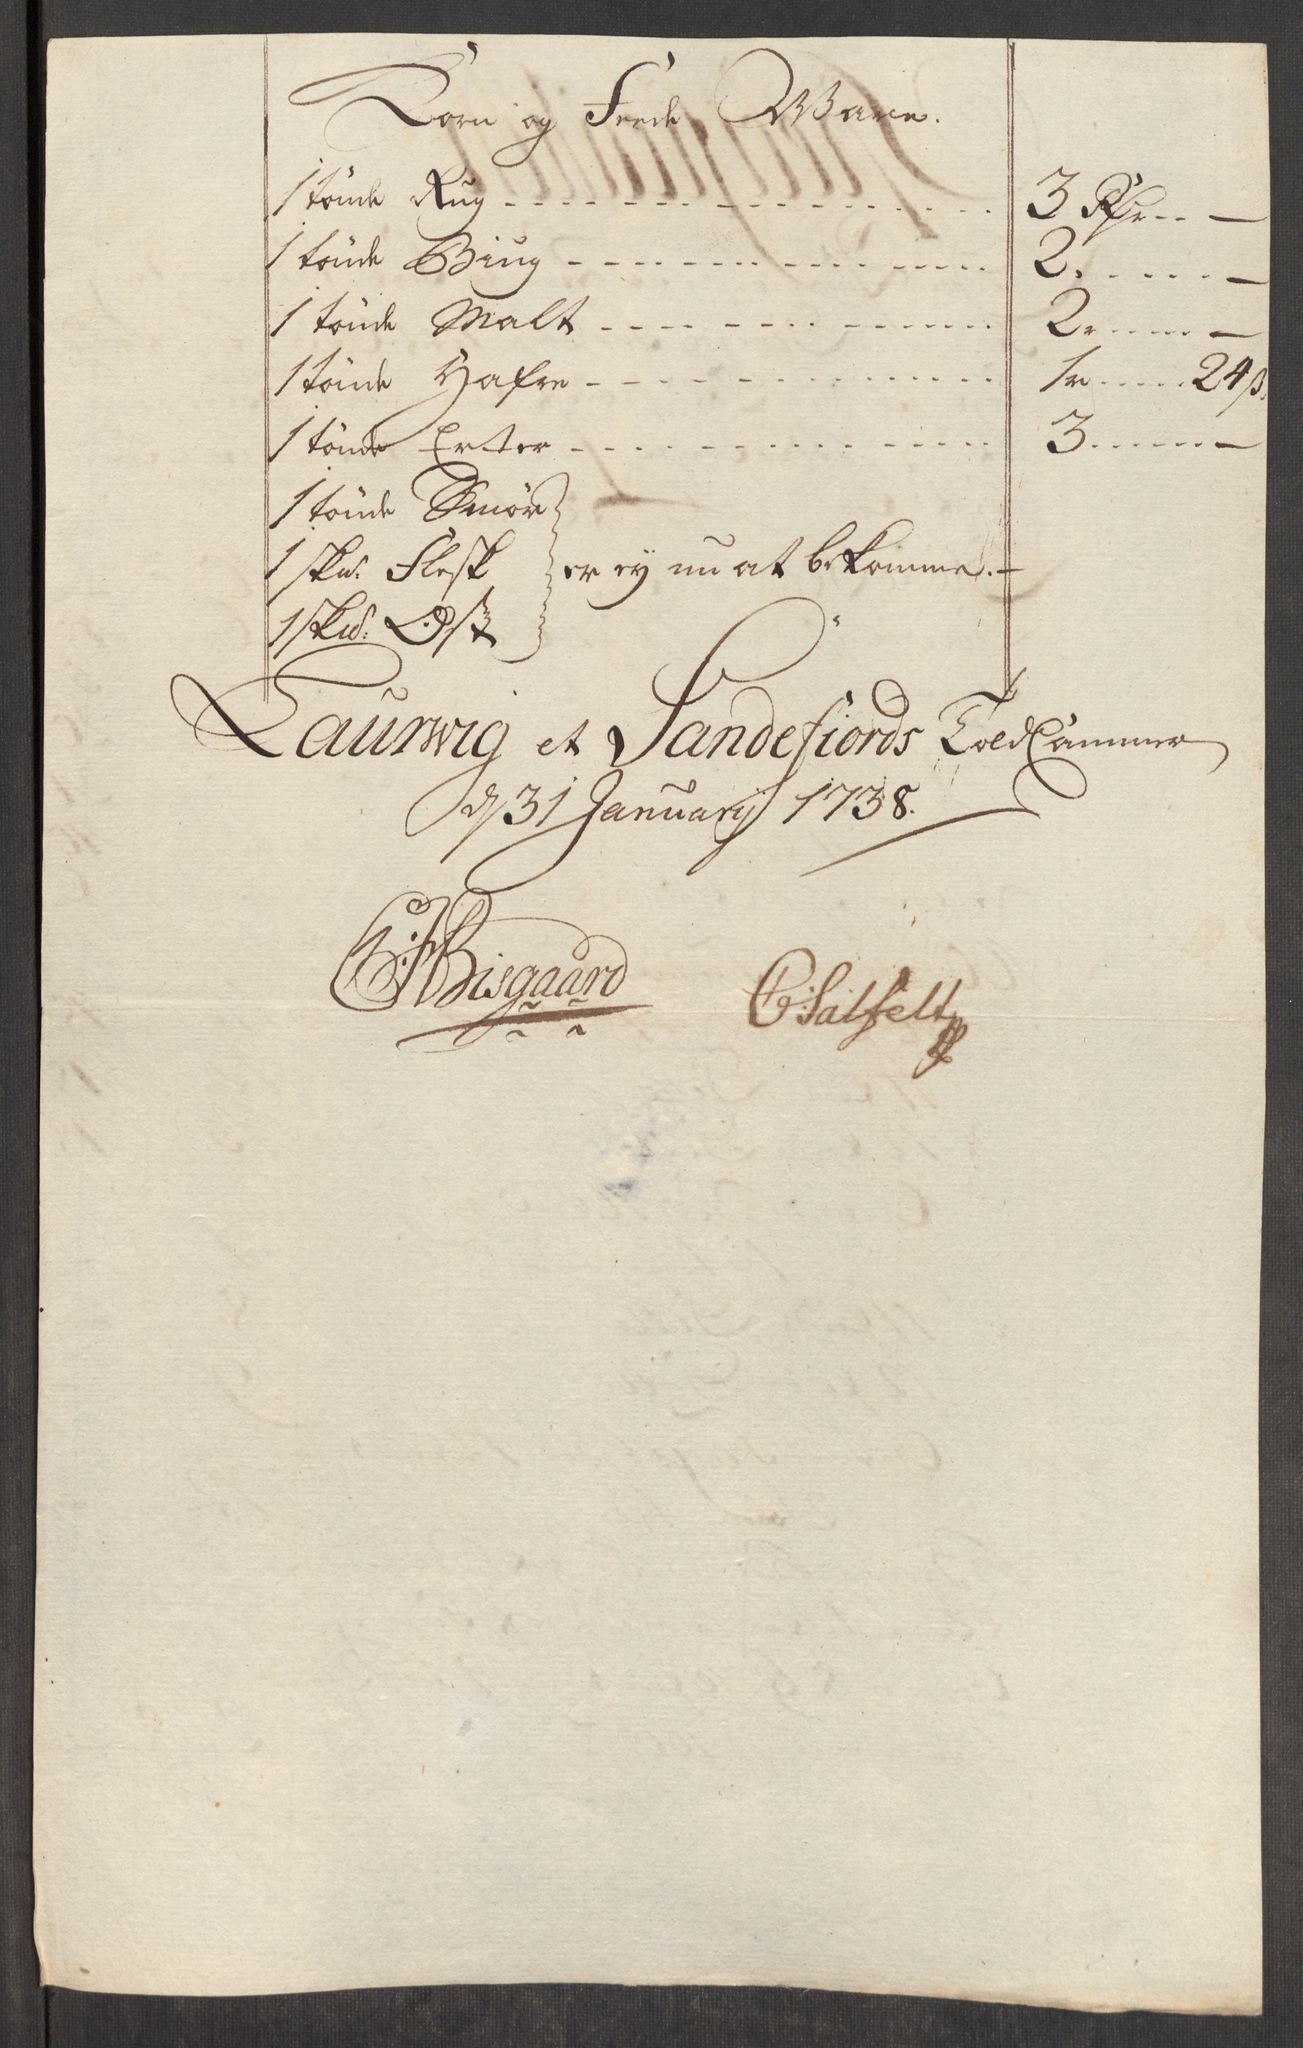 Korn og Feede Ware.
1 tönde Rug - - - - - - 3 Rdr - - —
1 tönde Biug - - - - - - 2. - - - —
1 tönde Malt - - - - - - 2 - - - —
1 tönde Hafre - - - - - - 1 - - - 24 ß.
1 tönde Erter - - - - - - 3 - - - —
1 tönde Smör
1 skd. Flesk } er ey nu at bekomme. —
1 skd: Ost
Laurwig et Sandefiords Told Cammer
d 31 January 1738.
Bisgaard
C: Salfelt